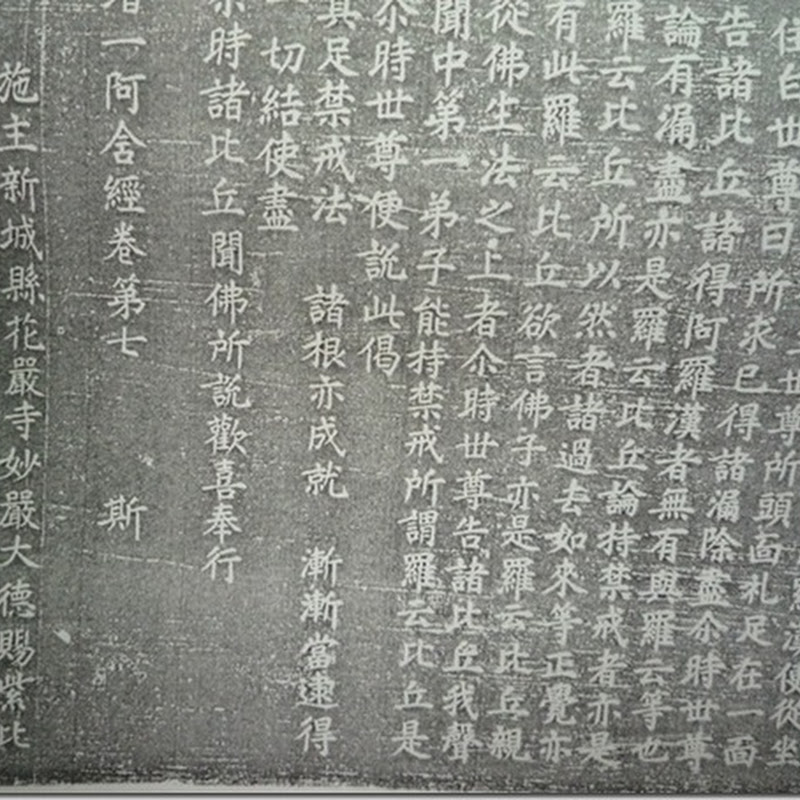 漢便從坐
住白世尊曰所求已得諸漏除盡尒時世尊
世尊所頭面札足在一面
告諸比丘諸得阿羅漢者無有與羅云等也
論有漏盡亦是羅云比丘論持禁戒者亦是
羅云比丘所以然者諸過去如來等正覺亦
有此羅云比丘欲言佛子亦是羅云比丘親
從佛生法之上者尒時世尊告諸比丘我聲
聞中第一弟子能持禁戒所謂羅云比丘是
尒時世尊便說此偈
具足禁戒法 諸根亦成就 漸漸當逮得
一切結使盡
尒時諸比丘聞佛所說歡喜奉行
一阿含經卷第七 斯
施主新城縣花嚴寺妙嚴大德賜紫比